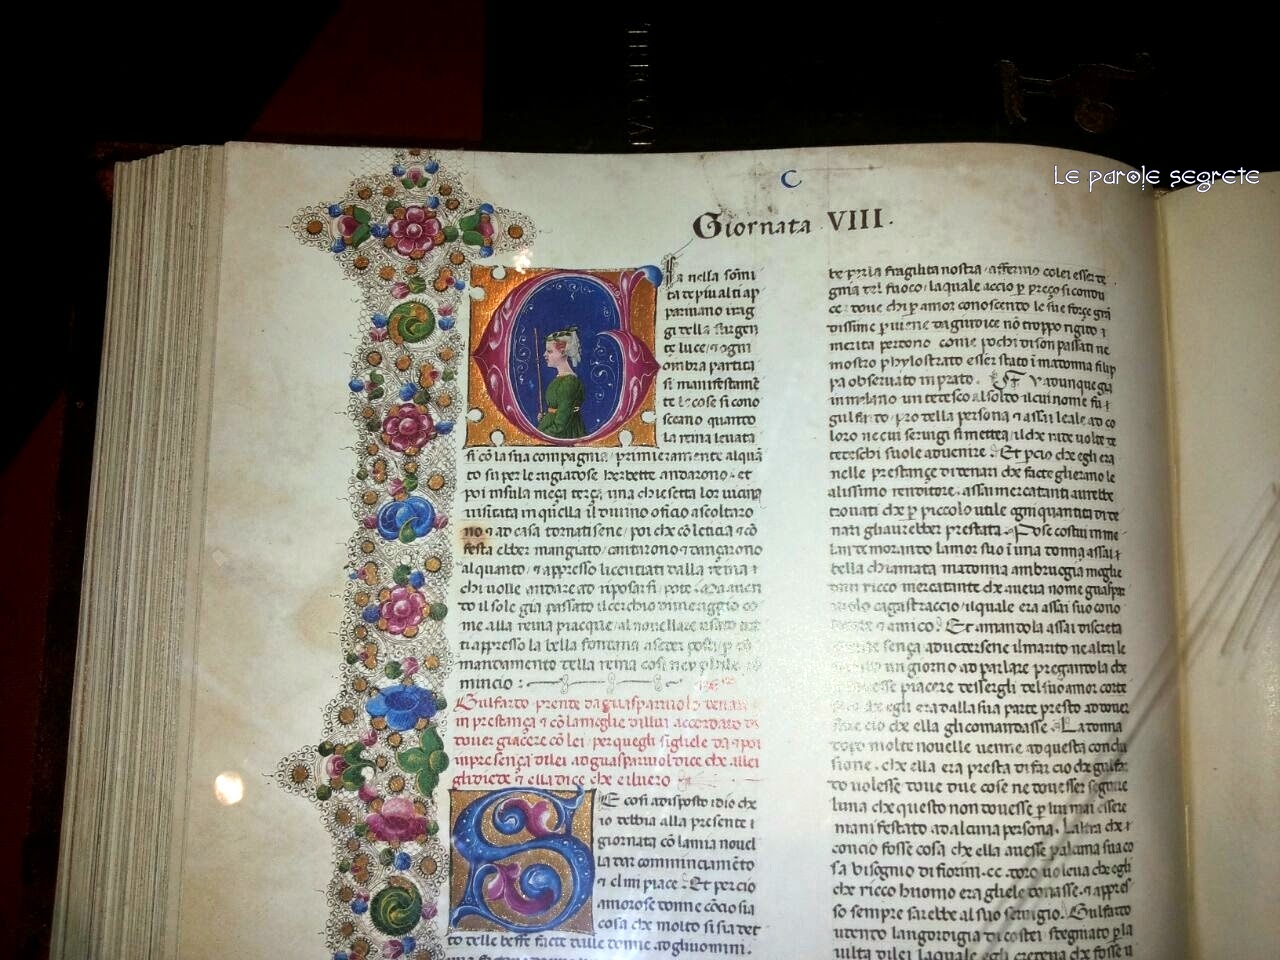 C
Le parole segrete
Giornata VIII.
Ia nella som̄i
ta te piu alti ap
pariuano i rag
gi della surgen
te luce ⁊ ogni
ombra partita
si manifestamē
te le cose si cono
sceano quanto
la reina leuata
si cō la sua compagnia primieramente alquā
to su per le rugiadose herbette andarono et
poi insula meça terça una chiesetta lor uicina
uisitata in quella il diuino oficio ascoltaro
no ⁊ ad casa tornatisene poi che cō leticia ⁊ cō
festa ebber mangiato cantarono ⁊ dançarono
alquanto ⁊ appresso licentiati dalla reina
chi uolle andare ad riposarsi pote
to il sole gia passato il cerchio di meriggio co
me alla reina piacque al nouellare usato
ti appresso la bella fontana a seder posti per co
mandamento della reina cosi neyphile
mincio :
Gulfardo prende da guasparruolo denari
in prestança ⁊ cō la moglie di llui accordato di
douer giacere cō lei per quegli si gliele da ⁊ poi
in presença di lei ad guasparruol dice che allei
gli diede ⁊ ella dice che e il uero
SE cosi ad disposto idio che
io debbia alla presente
giornata cō la mia nouel
la dar cominciamēto
⁊ el mi piace Et percio
amorose donne cōcio sia
cosa che molto si sia det
to delle beffe facte dalle donne ad gli uomini.
te per la fragilita nostra affermo colei esser de
gna del fuoco la quale accio per preço si condu
ce doue chi per amor conoscendo le sue força gra
dissime per uiene da giudice nō troppo rigido
merita perdono come pochi di son passati ne
mostro phylostrato esser stato ī madonna filip
pa obseruato in prato. Fu adunque gia
in melano un tedesco al soldo il cui nome fu
gulfardo pro della persona ⁊ assai leale ad co
loro ne cui seruigi si mettea il che rade uolte de
tedeschi suole aduenire Et percio che egli era
nelle prestançe di denari che facte gli erano le
alissimo renditore assai mercatanti aurebbe
trouati che per piccolo utile ogni quantita di de
nari gli aurebber prestata Pose costui in me
lan dimorando lamor suo ī una donna assai
bella chiamata madonna ambruogia moglie
dun ricco mercatante che aueua nome guaspar
ruolo cagastraccio il quale era assai suo cono
⁊ amico Et amandola assai discreta
sença aduedersene il marito ne altri le
un giorno ad parlare pregandola che
piacere dessergli del suo amor corte
egli era dalla sua parte presto ad douer
cio che ella gli comandasse La donna
dopo molte nouelle uenne ad questa conclu
sione che ella era presta di far cio che gulfar
do uolesse doue due cose ne douesser seguire
luna che questo non douesse per lui mai essere
manifestato ad alcuna persona Laltra che
concio fosse cosa che ella auesse per alcuna sua co
sa bisogno di fiorini .cc. doro uolea che egli
che ricco huomo era gliele donasse ⁊ appres
so sempre sarebbe al suo seruigio Gulfardo
udendo langordigia di costei sdegnato per la
uilta di lei la quale egli credeua che fosse u